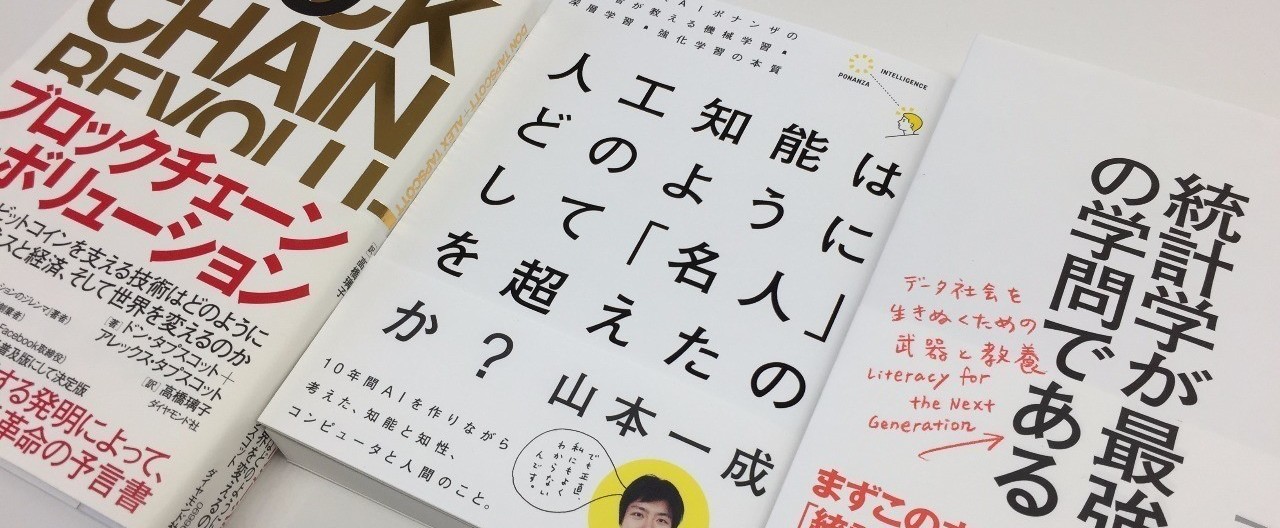 CHAIN
REVOLU
DON TAPSCOTT + ALEX TAPSCOTT
ブロックチェーン
ボリューション
ビットコインを支える技術はどのように
スと経済、そして世界を変えるのか
[著] ドン・タプスコット+
アレックス・タプスコット
[訳] 高橋璃子
ダイヤモンド社
[訳] 高橋璃子
Facebook取締役)
普及版にして決定版
する発明によって、
革命の予言書
AIポナンザの
が教える機械学習・
深層学習・強化学習の本質
PONANZA
INTELLIGENCE
人工知能は
どのように
して「名人」
を超えたの
か?
山本一成
10年間AIを作りながら
考えた、知能と知性、
コンピュータと人間のこと。
でも正直、
私にもよく
わからない
んです。
統計学が最強
の学問である
データ社会を
生きぬくための
武器と教養
Literacy for
the Next
Generation
まずこの
「統